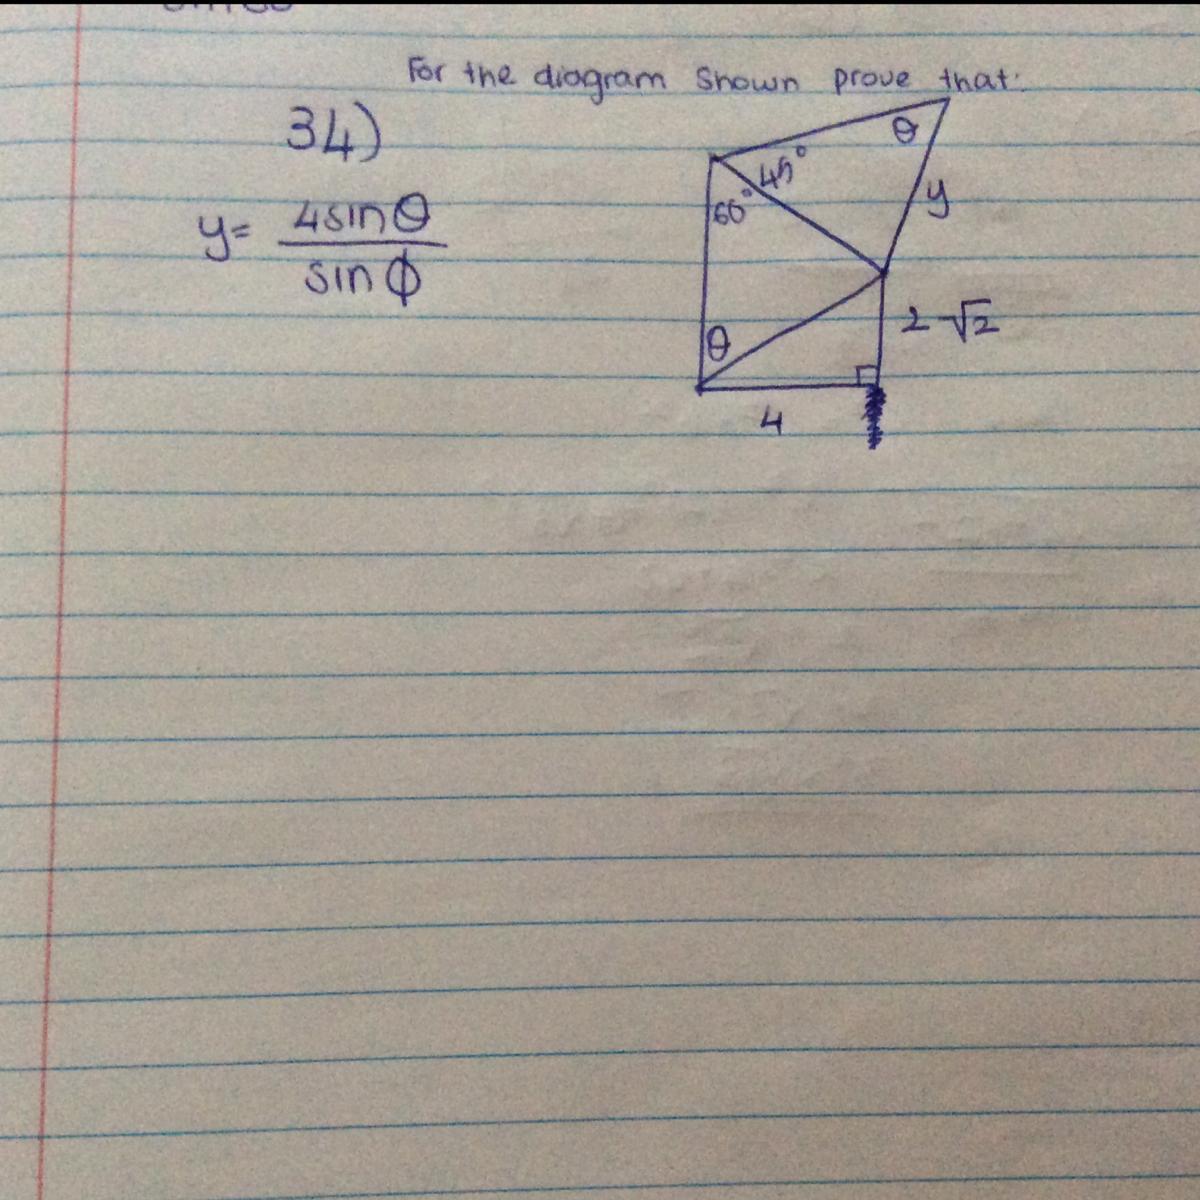 For the diagram shown prove that:
34)
y= 4sinθ
sin ϕ
θ
45°
60°
y
2√2
θ
4